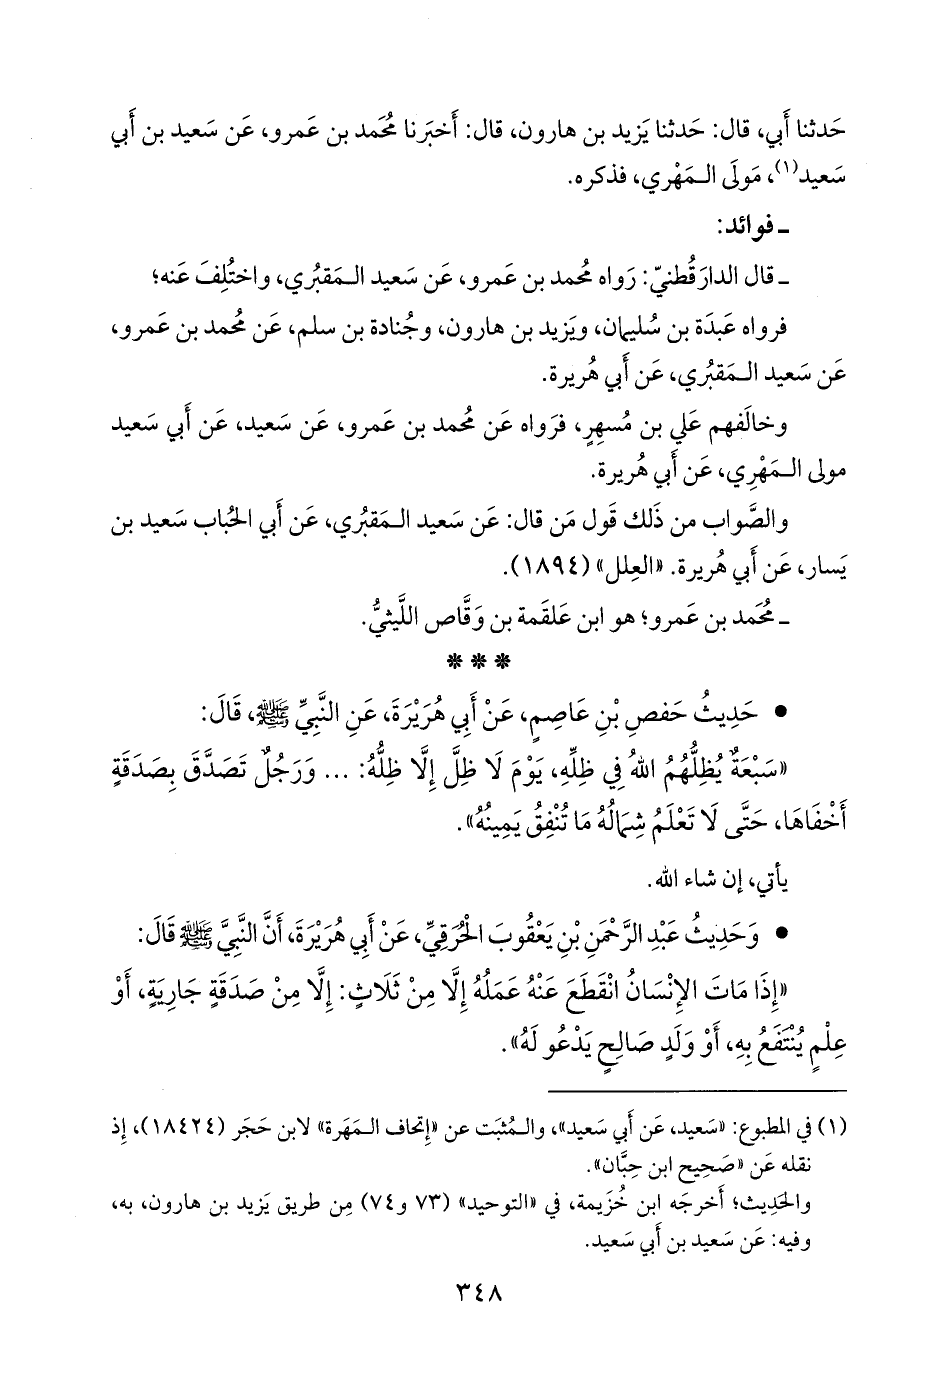 حَدثنا أَبي، قال: حَدثنا يَزيد بن هارون، قال: أَخبَرنا مُحَمد بن عَمرو، عَن سَعيد بن أَبي
سَعيد(١)، مَولَى الـمَهْري، فذكره.
ـ فوائد:
ـ قال الدارَقُطنيّ: رَواه مُحمد بن عَمرو، عَن سَعيد الـمَقبُري، واختُلِفَ عَنه؛
فرواه عَبدَة بن سُليمان، ويَزيد بن هارون، وجُنادة بن سلم، عَن مُحمد بن عَمرو،
عَن سَعيد الـمَقبُري، عَن أَبي هُريرة.
وخالَفهم عَلي بن مُسهِرٍ، فرَواه عَن مُحمد بن عَمرو، عَن سَعيد، عَن أَبي سَعيد
مولى الـمَهْرِي، عَن أَبي هُريرة.
والصَّواب من ذَلك قَول مَن قال: عَن سَعيد الـمَقبُري، عَن أَبي الحُباب سَعيد بن
يَسار، عَن أَبي هُريرة. «العِلل» (١٨٩٤).
ـ مُحَمد بن عَمرو؛ هو ابن عَلقَمة بن وَقَّاص اللَّيثيُّ.
***
• حَدِيثُ حَفصِ بْنِ عَاصِمٍ، عَنْ أَبِي هُرَيْرَةَ، عَنِ النَّبِيِّ ﷺ، قَالَ:
«سَبْعَةٌ يُظِلُّهُمُ اللهُ فِي ظِلِّهِ، يَوْمَ لَا ظِلَّ إِلَّا ظِلُّهُ: ... وَرَجُلٌ تَصَدَّقَ بِصَدَقَةٍ
أَخْفَاهَا، حَتَّى لَا تَعْلَمُ شِمَالُهُ مَا تُنْفِقُ يَمِينُهُ».
يأتي، إن شاء الله.
• وَحَدِيثُ عَبْدِ الرَّحْمَنِ بْنِ يَعْقُوبَ الْحُرَقِيِّ، عَنْ أَبِي هُرَيْرَةَ، أَنَّ النَّبِيَّ ﷺ قَالَ:
«إِذَا مَاتَ الإِنْسَانُ انْقَطَعَ عَنْهُ عَمَلُهُ إِلَّا مِنْ ثَلَاثٍ: إِلَّا مِنْ صَدَقَةٍ جَارِيَةٍ، أَوْ
عِلْمٍ يُنْتَفَعُ بِهِ، أَوْ وَلَدٍ صَالِحٍ يَدْعُو لَهُ».
(١) في المطبوع: «سَعيد، عَن أَبي سَعيد»، والـمُثبَت عن «إتحاف الـمَهَرة» لابن حَجَر (١٨٤٢٤)، إِذ
نقله عَن «صَحِيح ابن حِبَّان».
والحَدِيث؛ أَخرجَه ابن خُزَيمة، في «التوحيد» (٧٣ و٧٤) مِن طريق يَزيد بن هارون، به،
وفيه: عَن سَعيد بن أَبي سَعيد.
٣٤٨